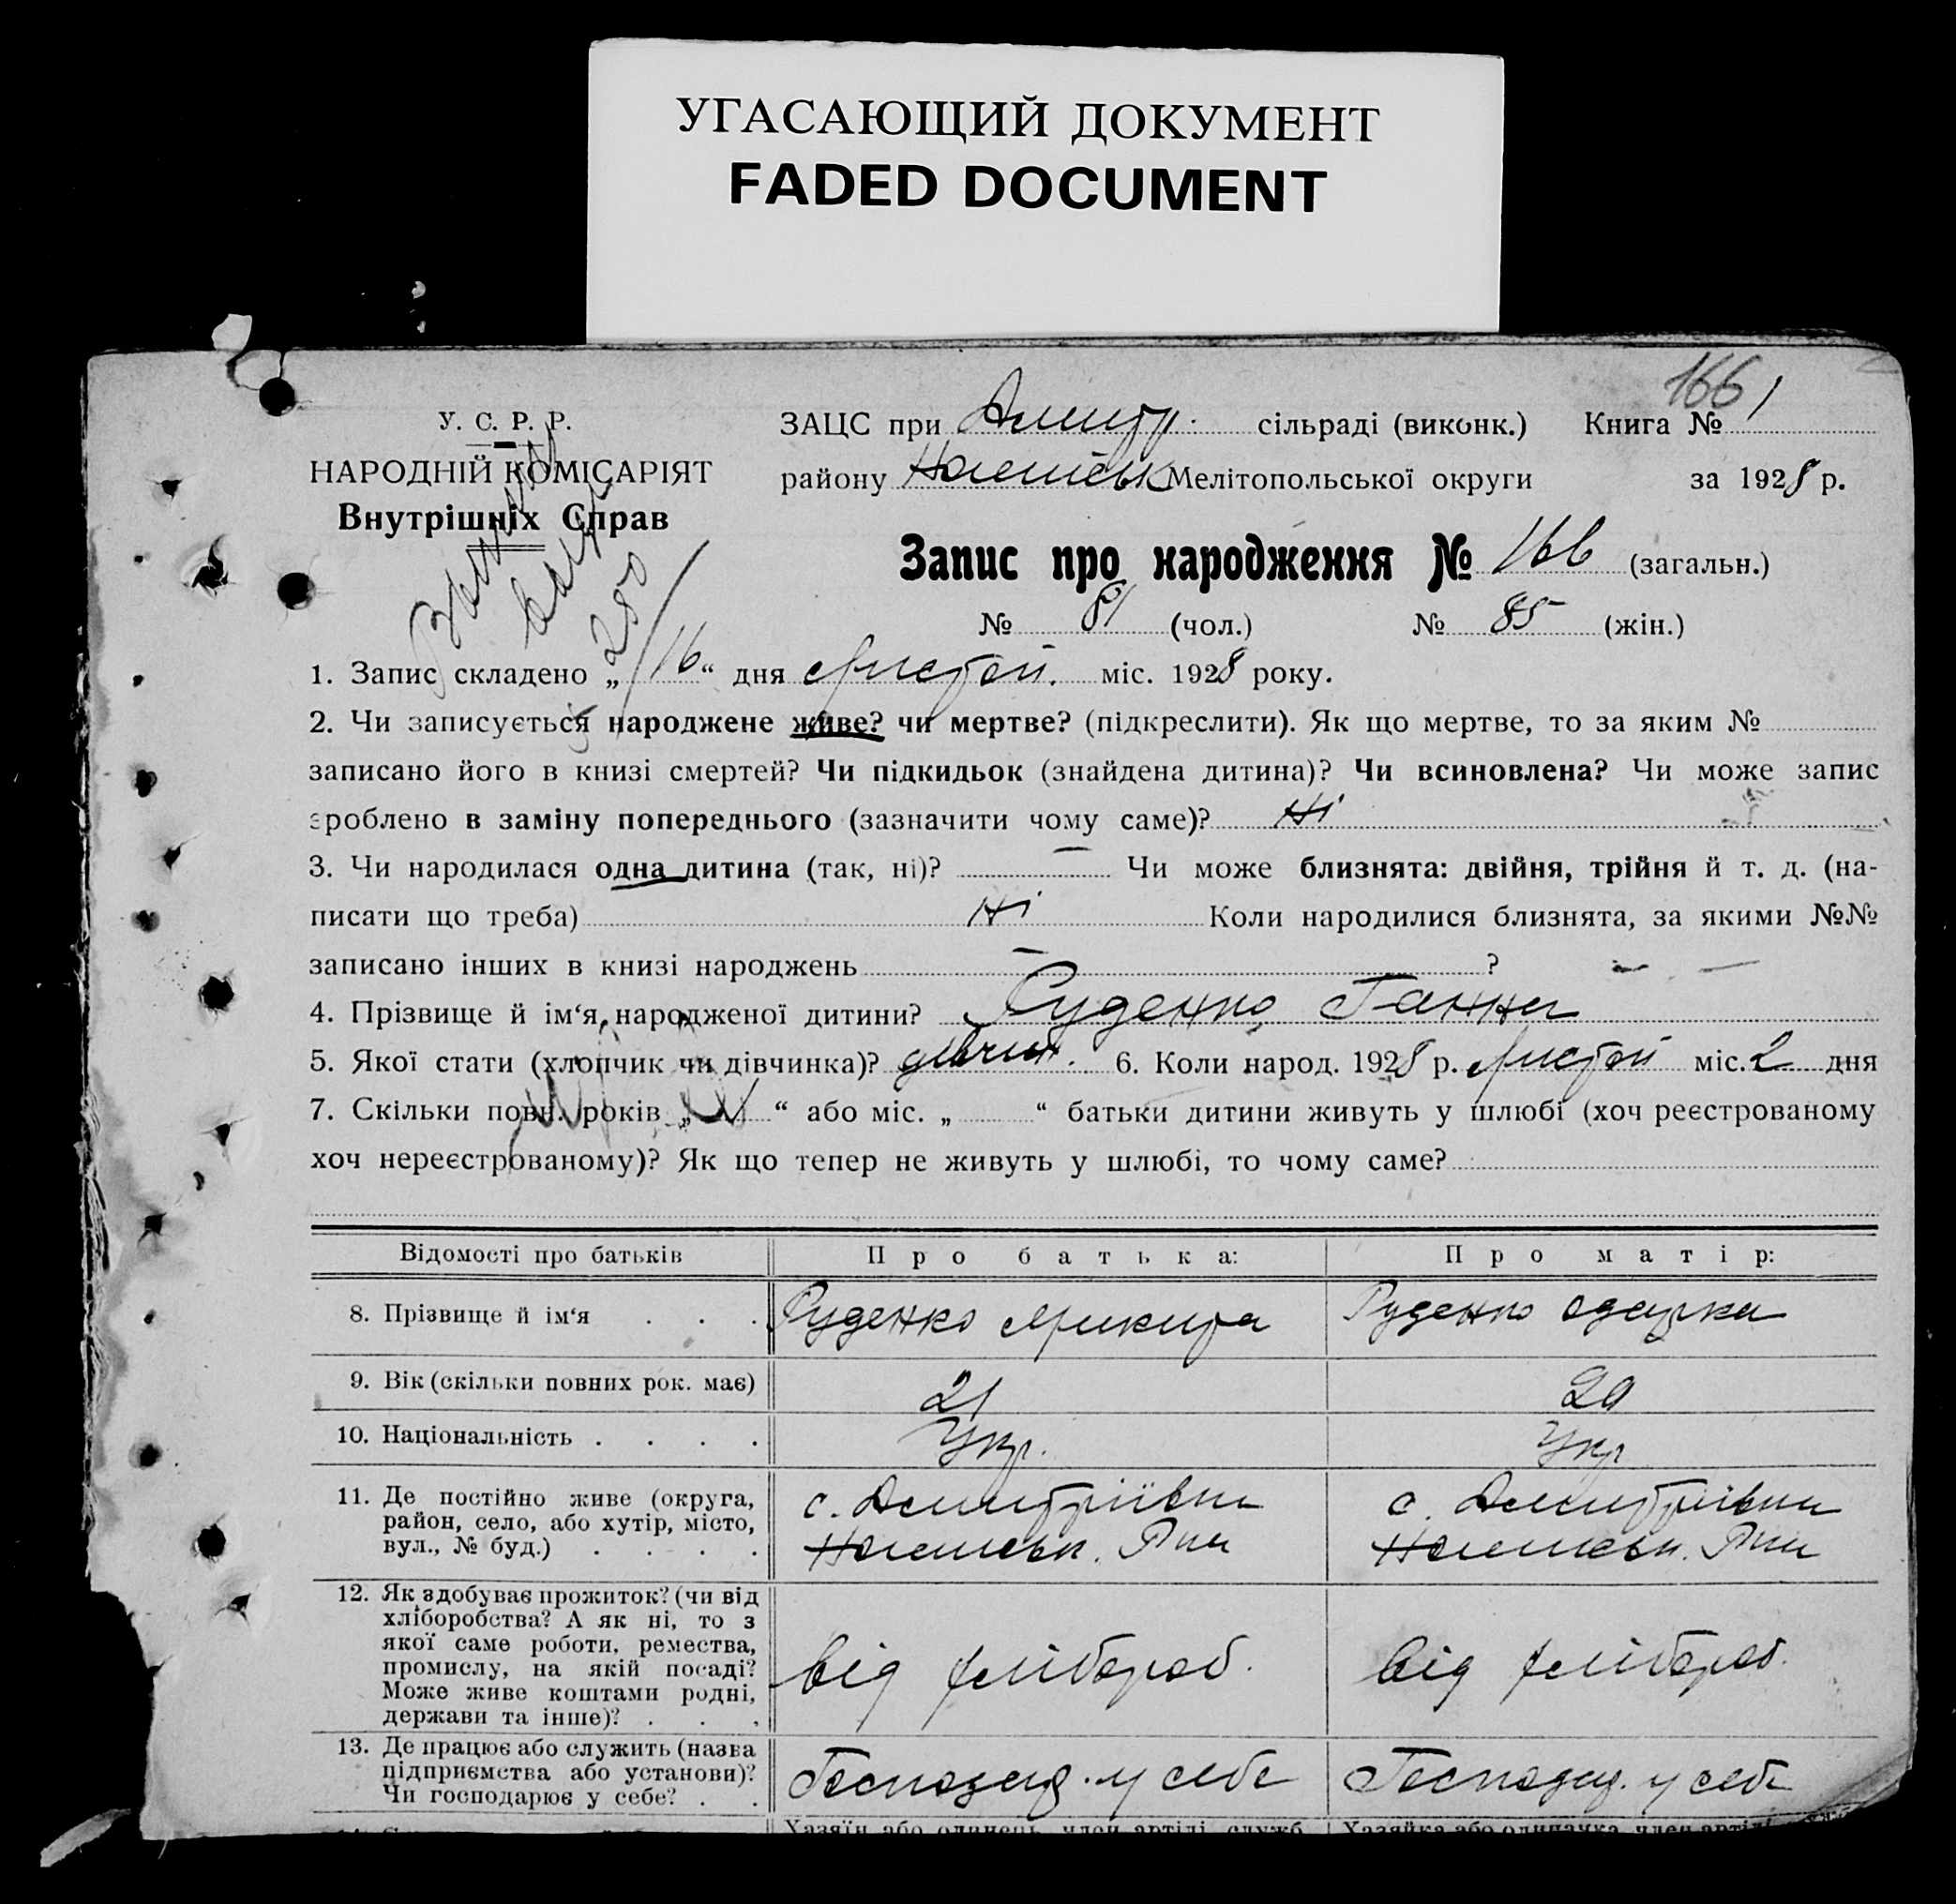 УГАСАЮЩИЙ ДОКУМЕНТ
FADED DOCUMENT
166
У. С. Р. Р.
НАРОДНІЙ КОМІСАРІЯТ
Внутрішніх Справ
ЗАЦС при Дмитр. сільраді (виконк.) Книга № 1
району Мелітопольської округи за 1928 р.
Запис про народження № 166 (загальн.)
№ 81 (чол.) № 85 (жін.)
250
1. Запис складено „16“ дня Листоп. міс. 1928 року.
2. Чи записується народжене живе? чи мертве? (підкреслити). Як що мертве, то за яким №
записано його в книзі смертей? Чи підкидьок (знайдена дитина)? Чи всиновлена? Чи може запис
зроблено в заміну попереднього (зазначити чому саме)? Ні
3. Чи народилася одна дитина (так, ні)? — Чи може близнята: двійня, трійня й т. д. (на-
писати що треба) Ні Коли народилися близнята, за якими №№
записано інших в книзі народжень — ?
4. Прізвище й ім‘я народженої дитини? Руденко Ганна
5. Якої стати (хлопчик чи дівчинка)? дівчин. 6. Коли народ. 1928 р. Листоп міс. 2 дня
7. Скільки повн. років „ “ або міс. „ “ батьки дитини живуть у шлюбі (хоч реєстрованому
хоч нереєстрованому)? Як що тепер не живуть у шлюбі, то чому саме?
Відомості про батьків Про батька: Про матір:
8. Прізвище й ім‘я . . . Руденко Микита Руденко Одарка
9. Вік (скільки повних рок. має) 21 20
10. Національність . . . . Укр. Укр
11. Де постійно живе (округа,
район, село, або хутір, місто,
вул., № буд.) . . . .
с. Дмитріївка
с. Дмитріївка
12. Як здобуває прожиток? (чи від
хліборобства? А як ні, то з
якої саме роботи, ремества,
промислу, на якій посаді?
Може живе коштами родні,
держави та інше)? . . .
від хлібороб. від хлібороб.
13. Де працює або служить (назва
підприємства або установи)?
Чи господарює у себе? . .
Господар. у себе Господар. у себе
Хазяїн або одинець, член артілі, служб. Хазяйка або одиначка, член артілі